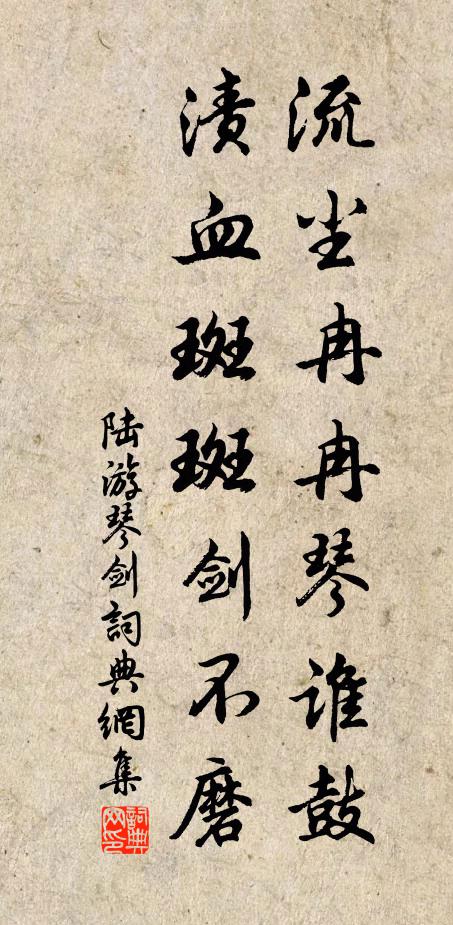 流尘冉冉琴谁鼓
渍血斑斑剑不磨
陆游琴剑詞典網集
詞典网印